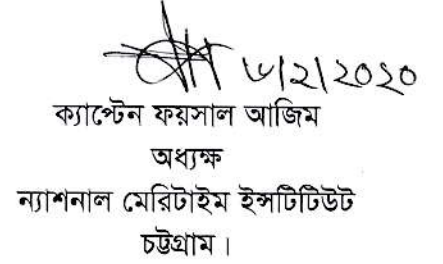 ৬/২/২০২০
ক্যাপ্টেন ফয়সাল আজিম
অধ্যক্ষ
ন্যাশনাল মেরিটাইম ইন্সটিটিউট
চট্টগ্রাম।